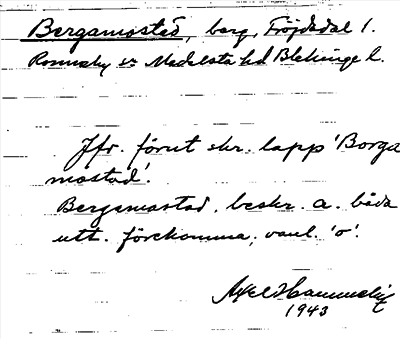 Bergamostad, berg, Fröjdadal 1.
Ronneby sn Medelsta hd Blekinge l.
Jfr. förut skr. lapp 'Borga
mostad'.
Bergamostad. beskr. a. båda
utt. förekomma; vanl. 'o'.
Axel
1943